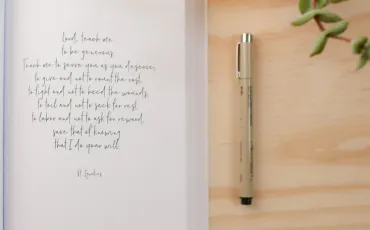 Lord, teach me
to be generous.
Teach me to serve you as you deserve,
to give and not to count the cost,
to fight and not to heed the wounds,
to toil and not to seek for rest,
to labor and not to ask for reward,
save that of knowing
that I do your will.
St. Ignatius